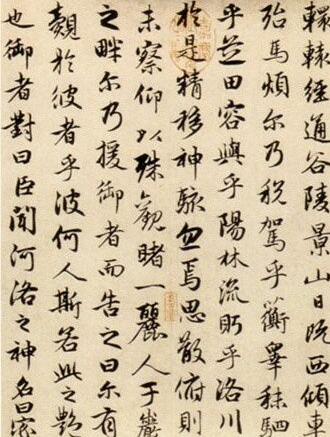 轘轅經通谷陵景山日既西傾車
殆馬煩尔乃税駕乎蘅皋秣駟
乎芝田容與乎陽林流眄乎洛川
於是精移神駭忽焉思散俯則
未察仰以殊觀睹一麗人于巖
之畔尔乃援御者而告之曰尔有
覿於彼者乎彼何人斯若此之艷
也御者對曰臣聞河洛之神名曰宓